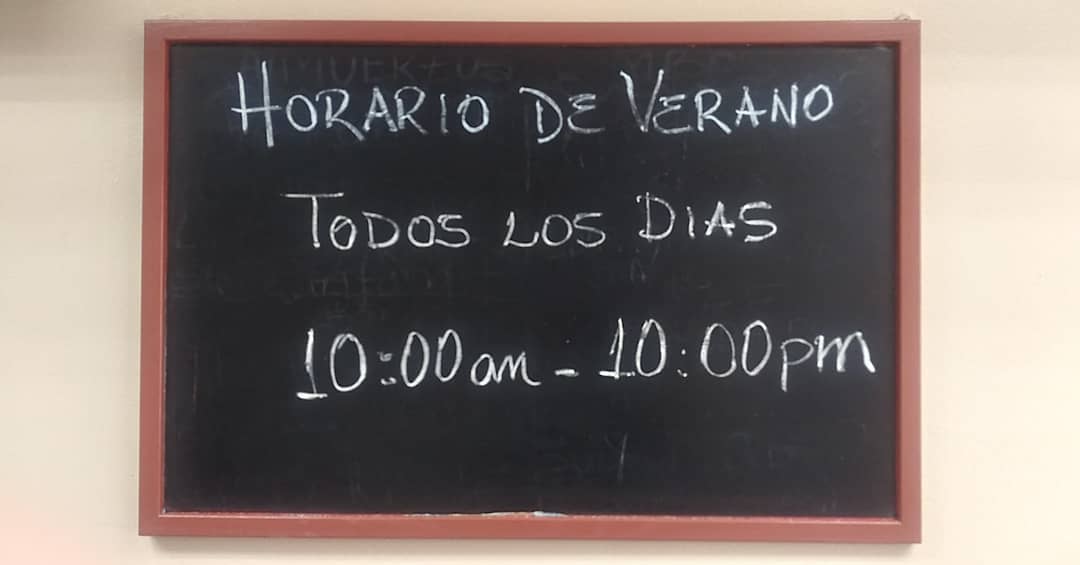 HORARIO DE VERANO
TODOS LOS DIAS
10:00am - 10:00pm